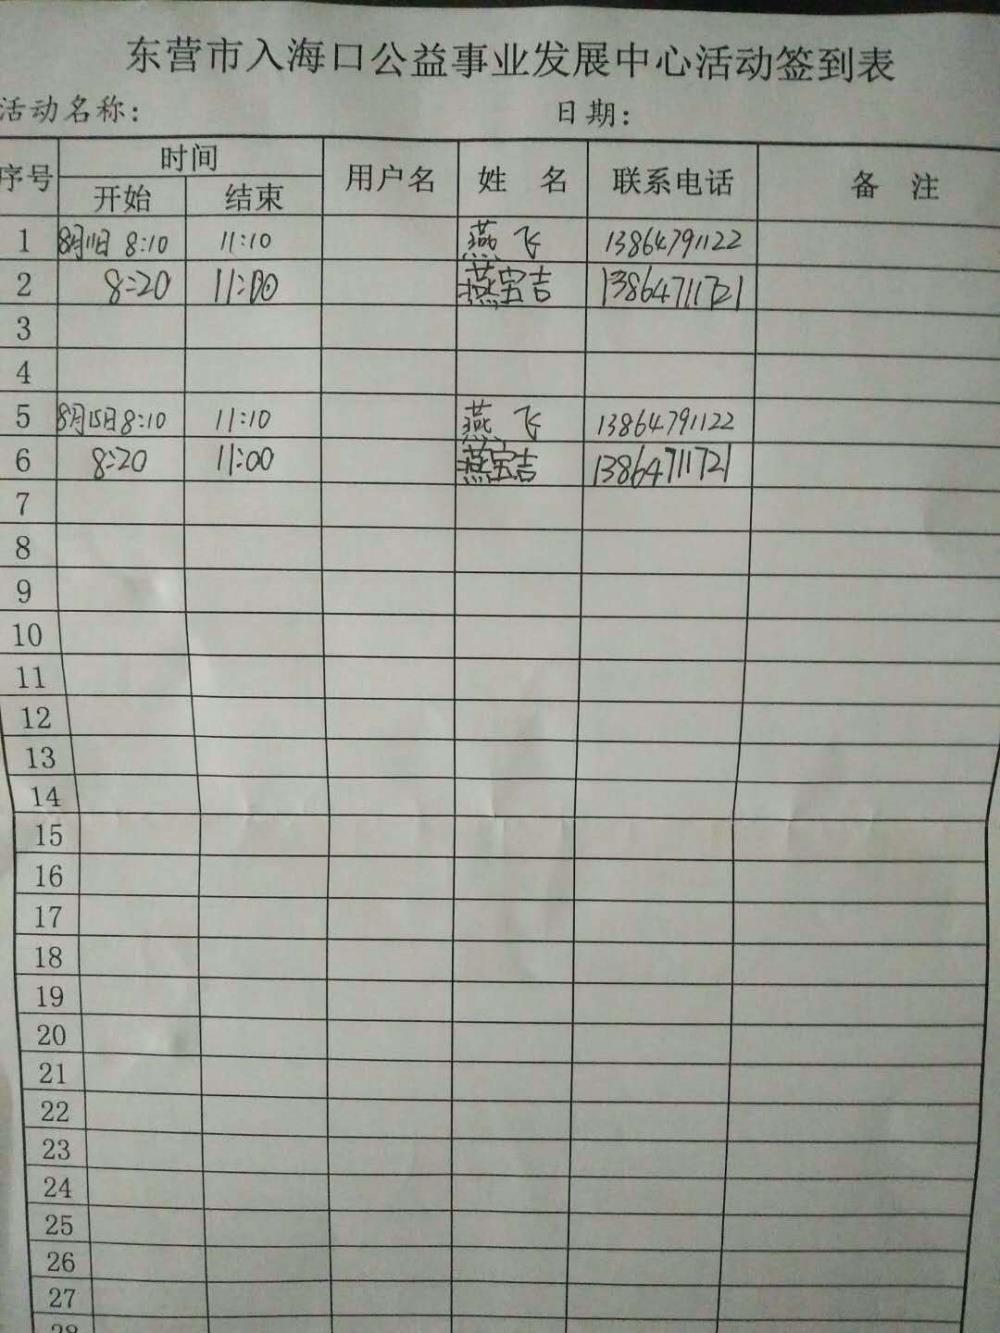 东营市入海口公益事业发展中心活动签到表
活动名称: 日期:
序号 时间 用户名 姓 名 联系电话 备 注
开始 结束
1 8月11日 8:10 11:10 燕 飞 13864791122
2 8:20 11:00 燕宝吉 13864711721
3
4
5 8月15日 8:10 11:10 燕 飞 13864791122
6 8:20 11:00 燕宝吉 13864711721
7
8
9
10
11
12
13
14
15
16
17
18
19
20
21
22
23
24
25
26
27
28